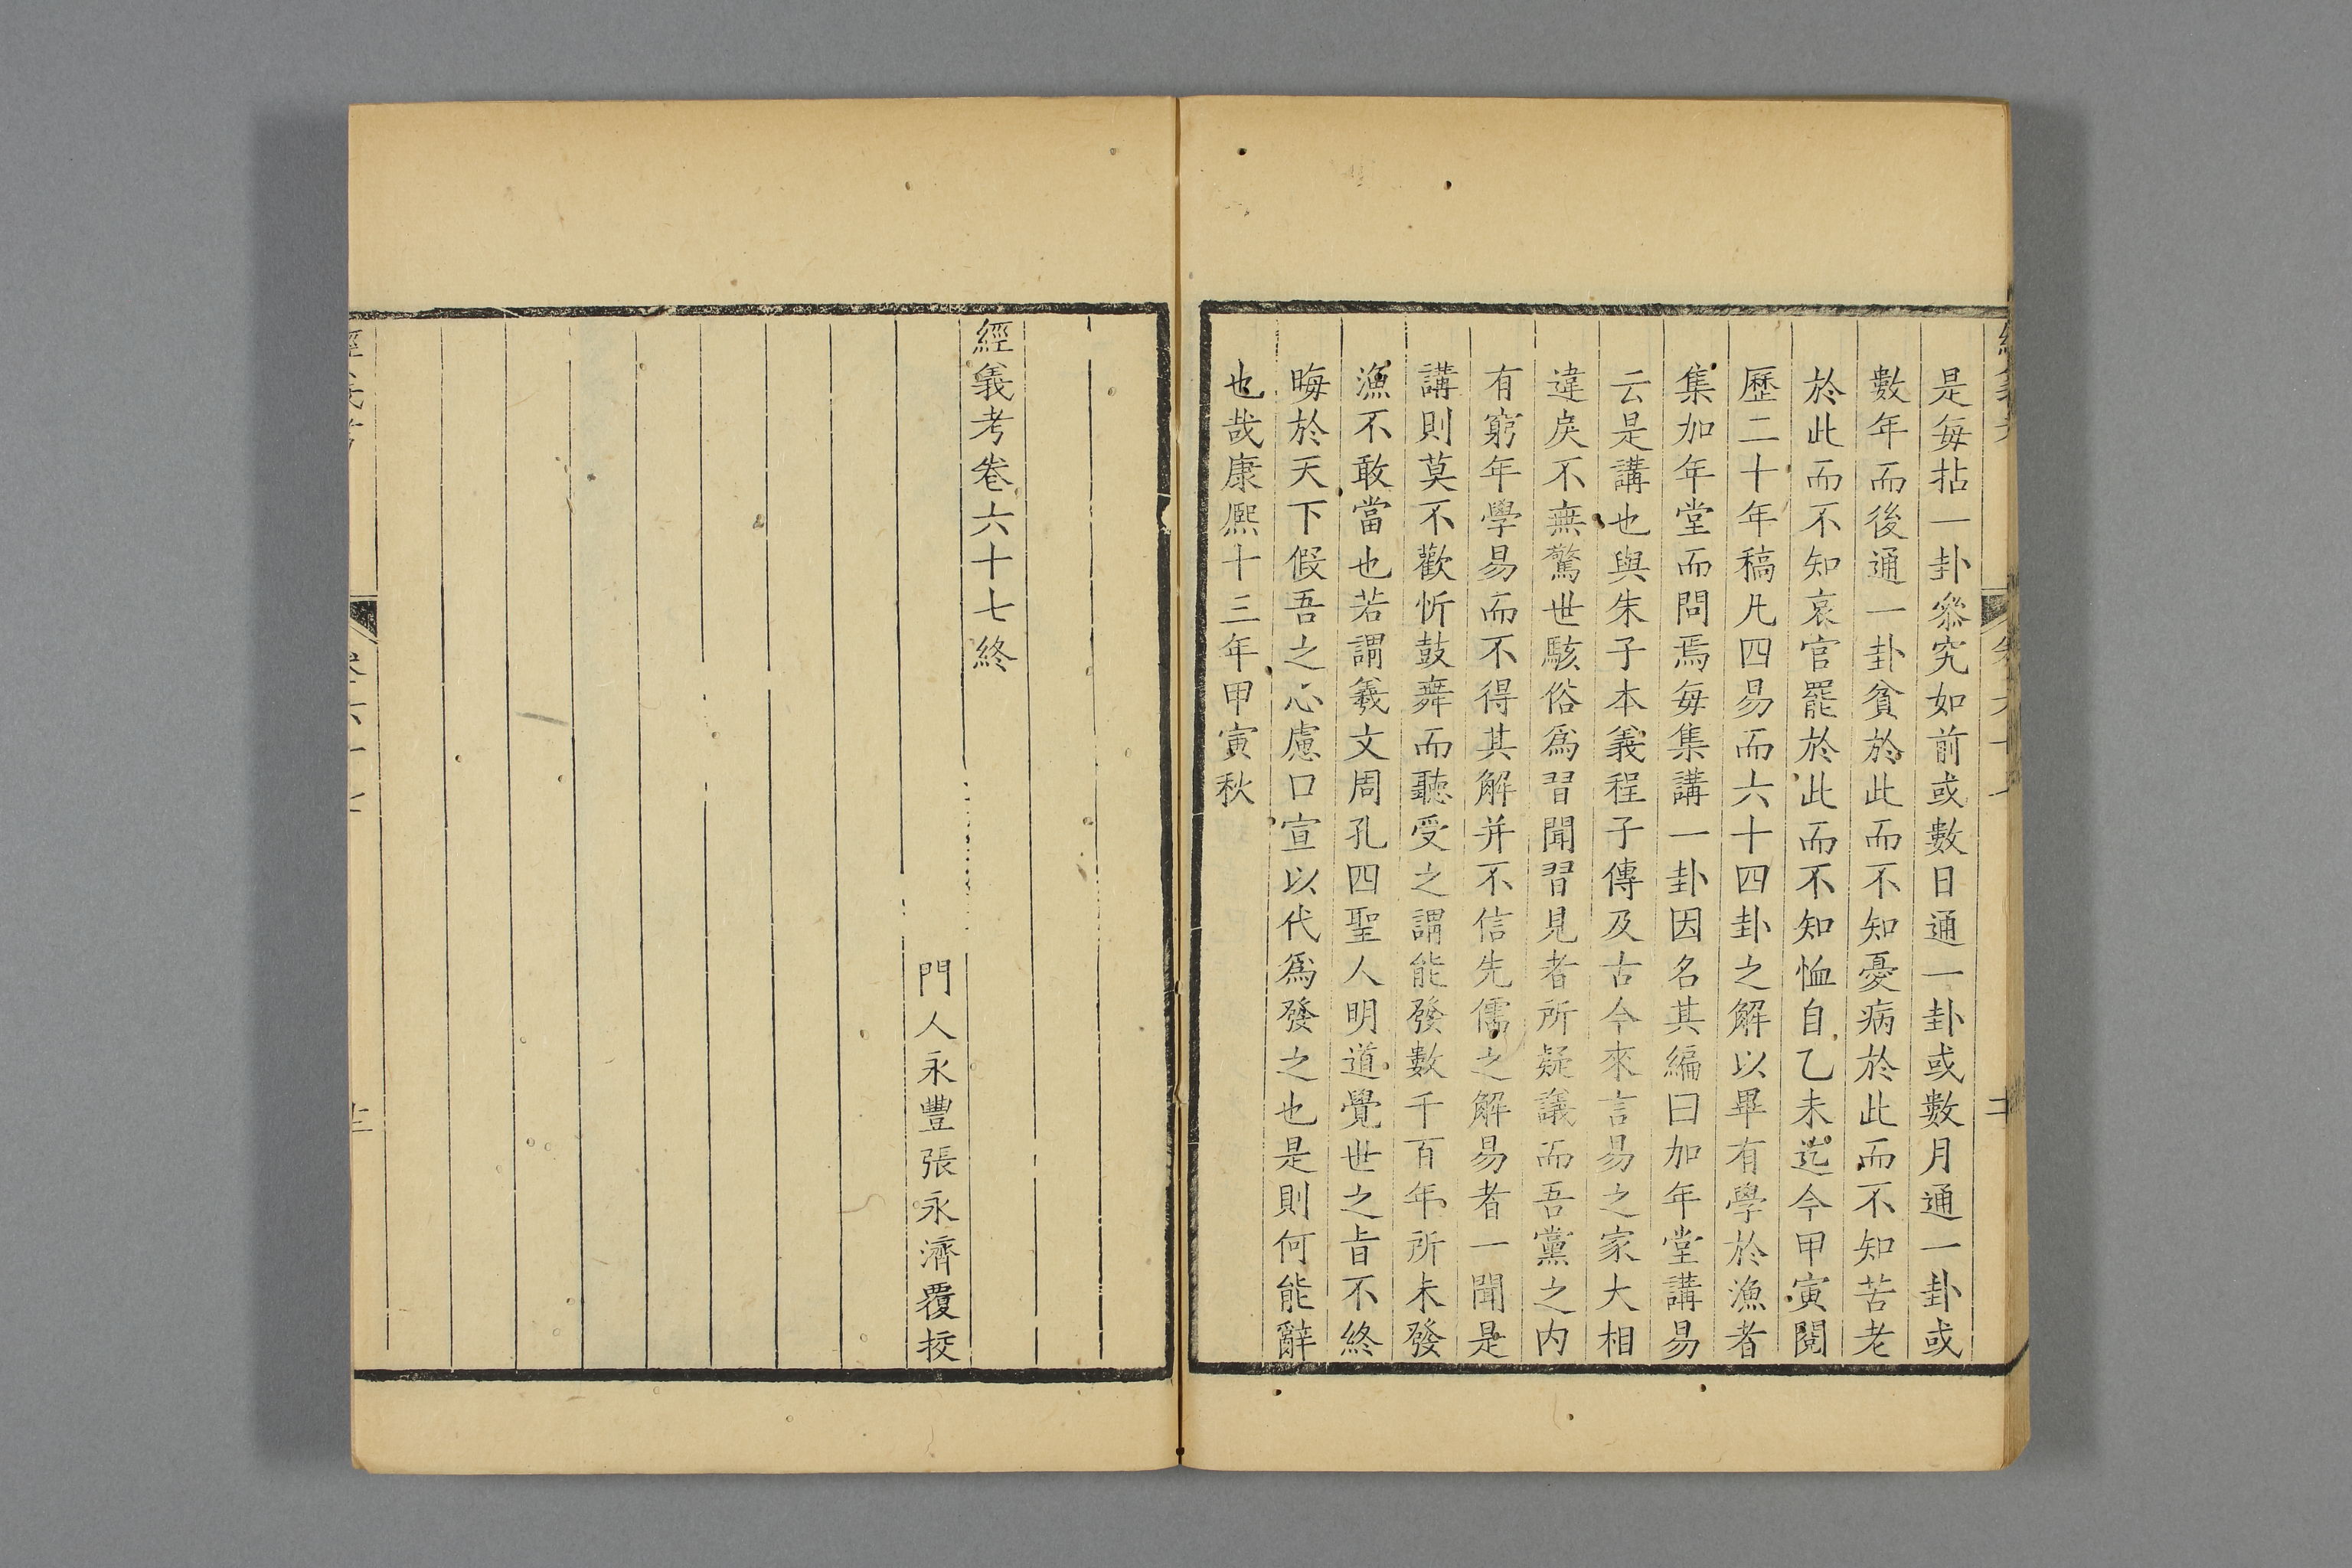 是每拈一卦叅究如前或數日通一卦或數月通一卦或
數年而後通一卦貧於此而不知憂病於此而不知苦老
於此而不知哀官罷於此而不知恤自乙未迄今甲寅閱
歷二十年稿凡四易而六十四卦之解以畢有學於漁者
集加年堂而問焉每集講一卦因名其編曰加年堂講易
云是講也與朱子本義程子傳及古今來言易之家大相
違戾不無驚世駭俗爲習聞習見者所疑議而吾黨之內
有窮年學易而不得其解并不信先儒之解易者一聞是
講則莫不歡忻鼓舞而聽受之謂能發數千百年所未發
漁不敢當也若謂羲文周孔四聖人明道覺世之旨不終
晦於天下假吾之心慮口宣以代爲發之也是則何能辭
也哉康熙十三年甲寅秋
經義考卷六十七終
門人永豐張永濟覆挍